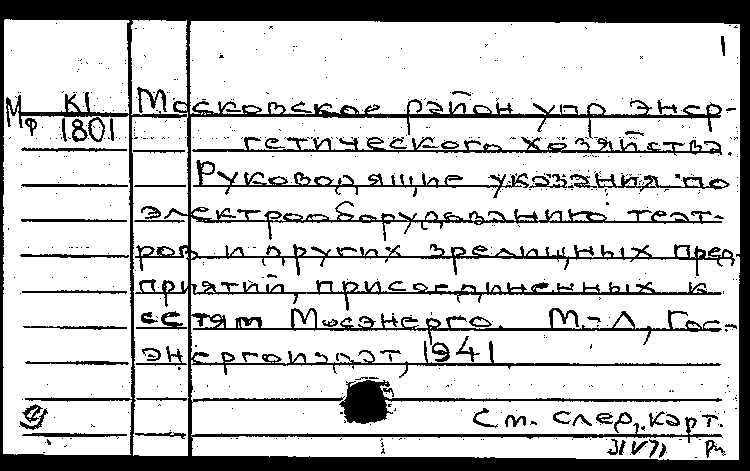 1
Мф К1
1801
Московское район упр энер-
гетического хозяйства.
Руководящие указания по
электрооборудованию теат-
ров и других зрелищных пред-
приятий, присоединенных к
сетям Мосэнерго. М.-Л, Гос-
энергоиздат, 1941
См. след. карт.